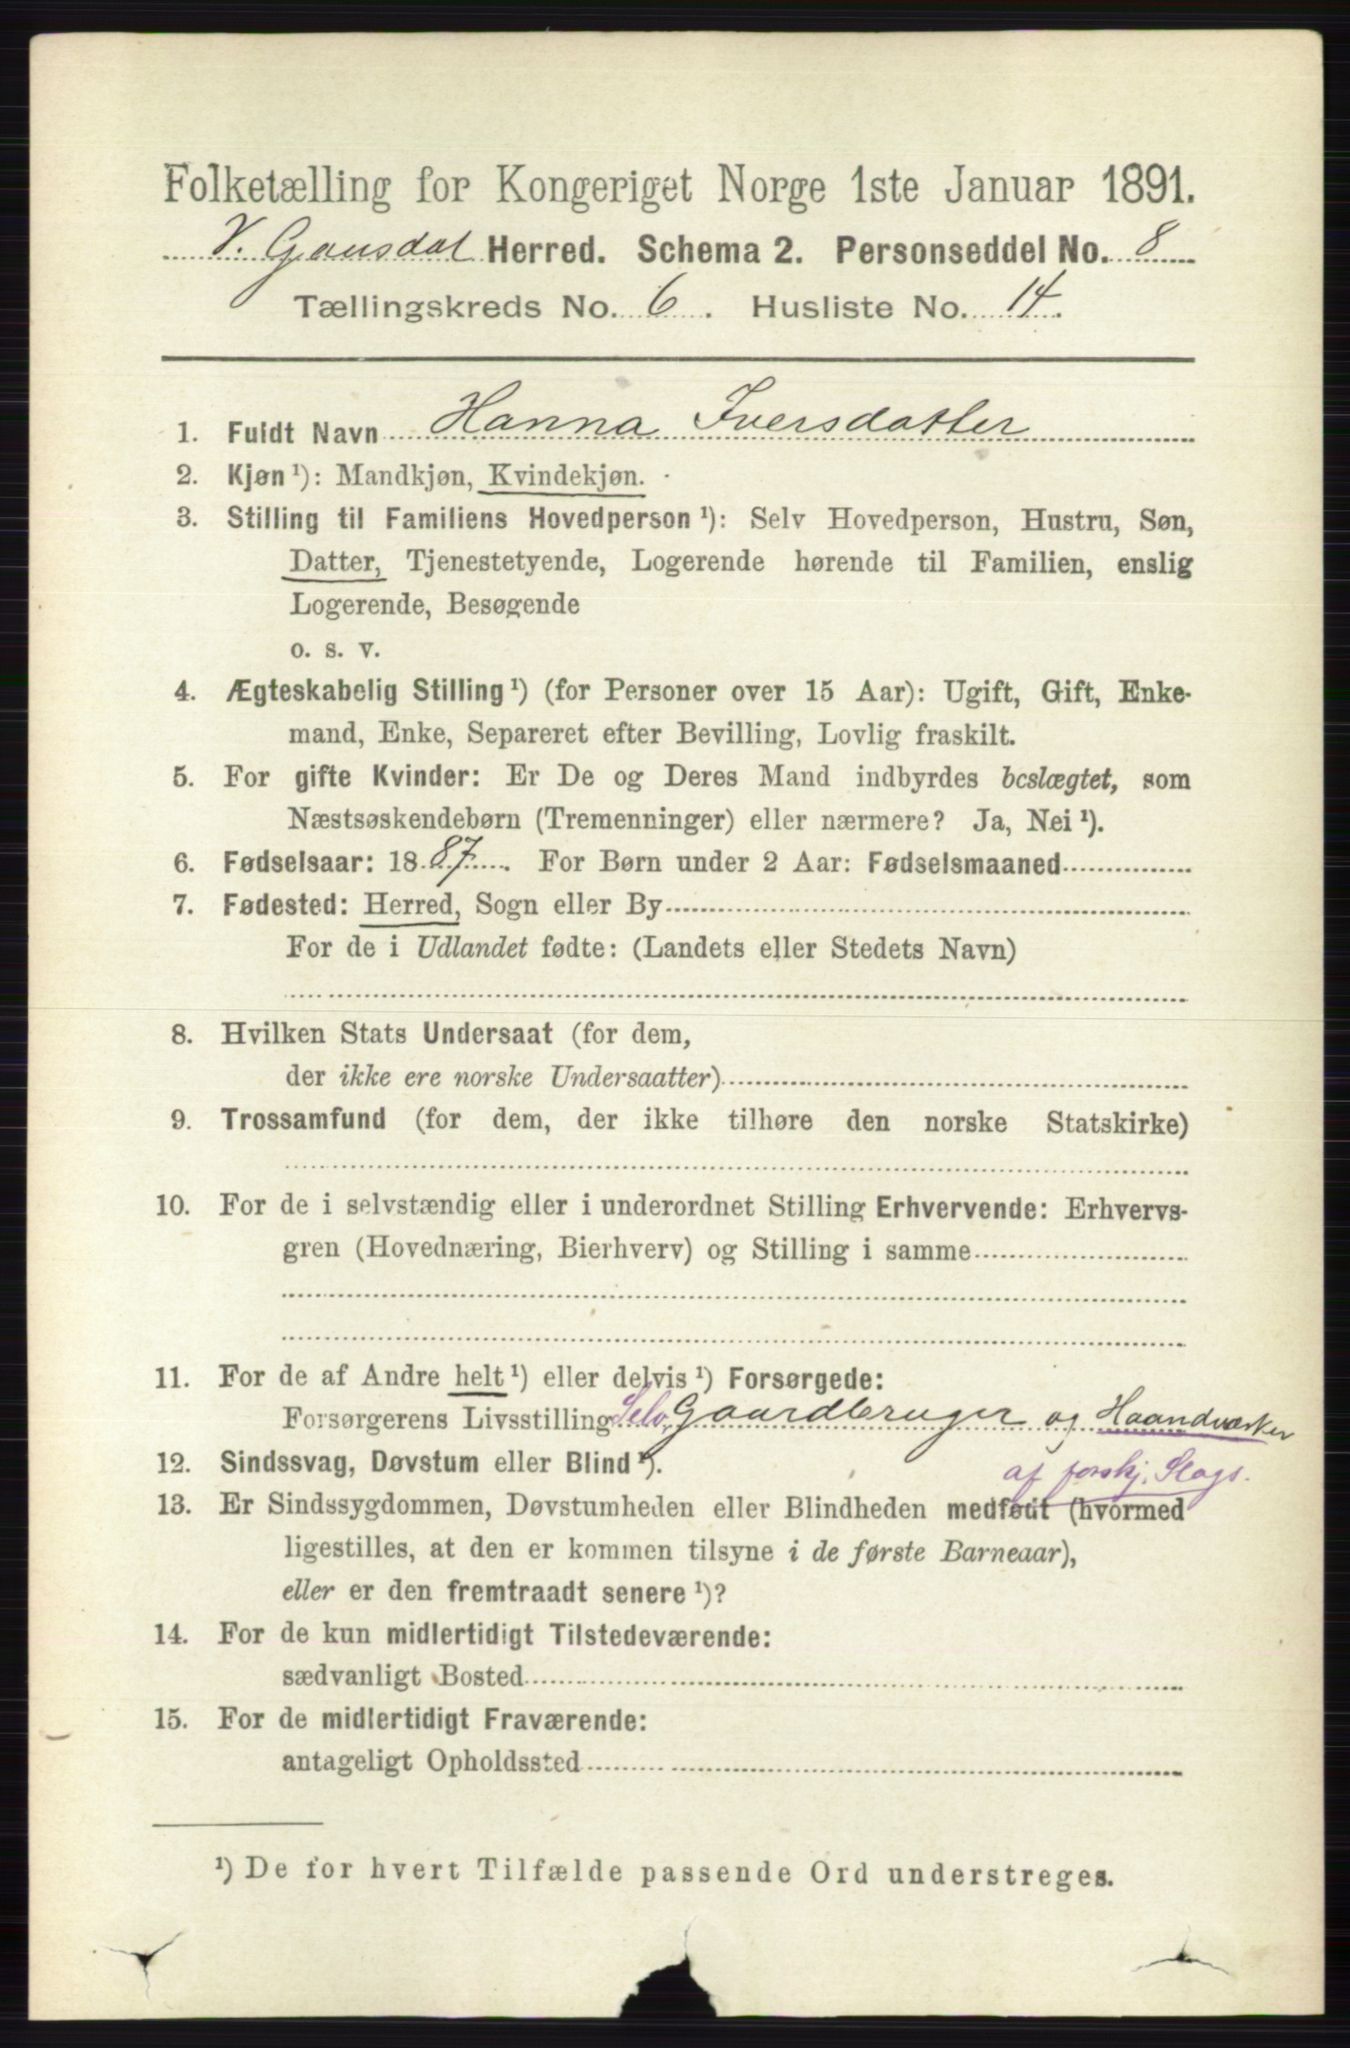 Folketælling for Kongeriget Norge 1ste Januar 1891.
V. Gausdal Herred. Schema 2. Personseddel No. 8
Tællingskreds No. 6. Husliste No. 14.
1. Fuldt Navn Hanna Iversdatter
2. Kjøn ¹): Mandkjøn, Kvindekjøn.
3. Stilling til Familiens Hovedperson ¹): Selv Hovedperson, Hustru, Søn,
Datter, Tjenestetyende, Logerende hørende til Familien, enslig
Logerende, Besøgende
o. s. v.
4. Ægteskabelig Stilling ¹) (for Personer over 15 Aar): Ugift, Gift, Enke-
mand, Enke, Separeret efter Bevilling, Lovlig fraskilt.
5. For gifte Kvinder: Er De og Deres Mand indbyrdes beslægtet, som
Næstsøskendebørn (Tremenninger) eller nærmere? Ja, Nei ¹).
6. Fødselsaar: 1887. For Børn under 2 Aar: Fødselsmaaned
7. Fødested: Herred, Sogn eller By
For de i Udlandet fødte: (Landets eller Stedets Navn)
8. Hvilken Stats Undersaat (for dem,
der ikke ere norske Undersaatter)
9. Trossamfund (for dem, der ikke tilhøre den norske Statskirke)
10. For de i selvstændig eller i underordnet Stilling Erhvervende: Erhvervs-
gren (Hovednæring, Bierhverv) og Stilling i samme
11. For de af Andre helt ¹) eller delvis ¹) Forsørgede:
Forsørgerens Livsstilling Selv. Gaardbruger og Haandværker
af forskj. Slags.
12. Sindssvag, Døvstum eller Blind ¹).
13. Er Sindssygdommen, Døvstumheden eller Blindheden medfødt (hvormed
ligestilles, at den er kommen tilsyne i de første Barneaar),
eller er den fremtraadt senere ¹)?
14. For de kun midlertidigt Tilstedeværende:
sædvanligt Bosted
15. For de midlertidigt Fraværende:
antageligt Opholdssted
¹) De for hvert Tilfælde passende Ord understreges.